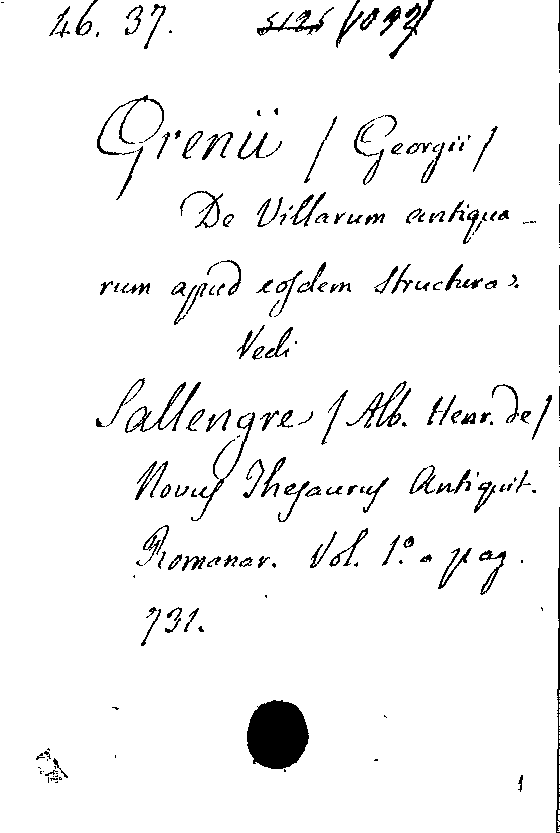 46. 37. 5125 (1092)
Grenii / Georgii /
De Villarum antiqua-
rum apud eosdem structura.
Vedi
Sallengre / Alb. Henr. de /
Novus Thesaurus Antiquit.
Romanar. Vol. 1º. a pag.
731.
1